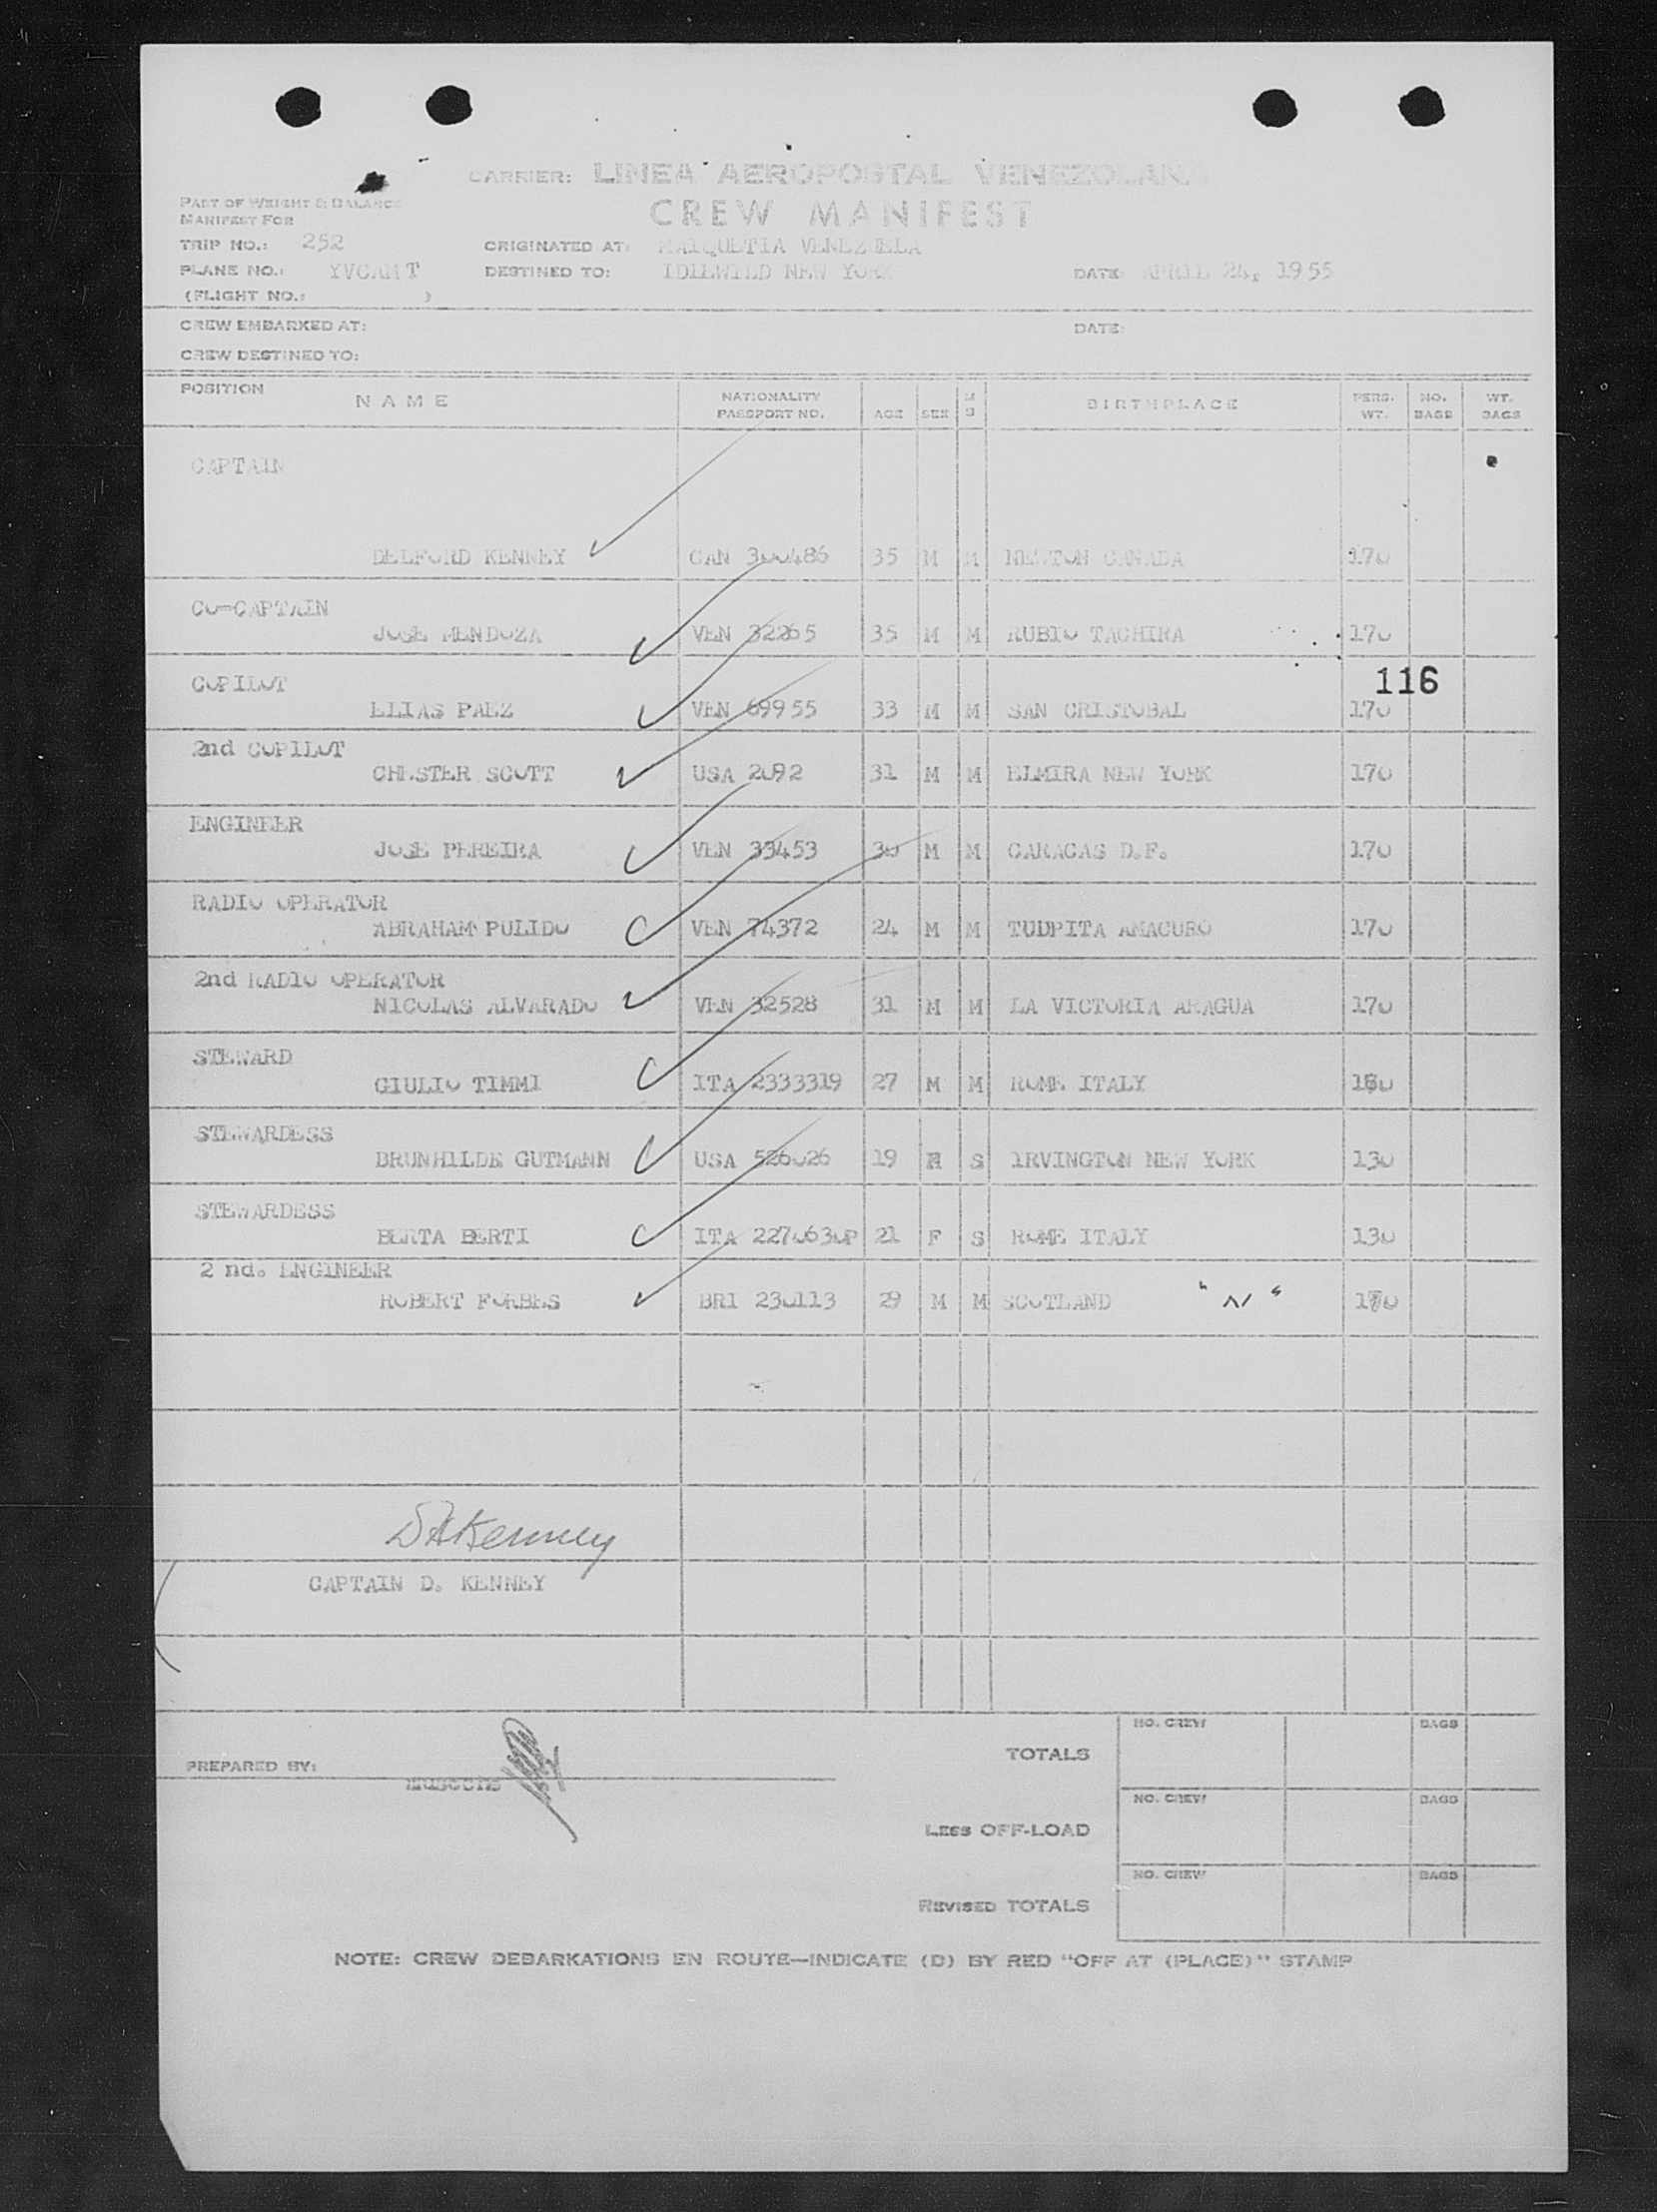 CARRIER: LINEA AEROPOSTAL VENEZOLANA
PART OF WEIGHT & BALANCE
MANIFEST FOR
CREW MANIFEST
TRIP NO.: 252 ORIGINATED AT: MAIQUETIA VENEZUELA
PLANE NO.: DESTINED TO: IDLEWILD NEW YORK DATE: APRIL 1955
(FLIGHT NO.: )
CREW EMBARKED AT: DATE:
CREW DESTINED TO:
POSITION NAME NATIONALITY PASSPORT NO. AGE SEX M S BIRTHPLACE PERS. WT. NO. BAGS WT. BAGS
CAPTAIN
DELFORD KENNEY CAN 300486 35 M M NEWTON CANADA 170
CO-CAPTAIN
JOSE MENDOZA VEN 32265 35 M M RUBIO TACHIRA 170
116
COPILOT
ELIAS PAEZ VEN 69955 33 M M SAN CRISTOBAL 170
2nd COPILOT
CHESTER SCOTT USA 2092 31 M M ELMIRA NEW YORK 170
ENGINEER
JOSE PEREIRA VEN 33453 30 M M CARACAS D.F. 170
RADIO OPERATOR
ABRAHAM PULIDO VEN 74372 24 M M TUDPITA AMACURO 170
2nd RADIO OPERATOR
NICOLAS ALVARADO VEN 32528 31 M M LA VICTORIA ARAGUA 170
STEWARD
GIULIO TIMMI ITA 2333319 27 M M ROME ITALY
STEWARDESS
BRUNHILDE GUTMANN USA 526026 19 F S IRVINGTON NEW YORK 130
STEWARDESS
BERTA BERTI ITA 2270630P 21 F S ROME ITALY 130
2 nd. ENGINEER
ROBERT FORBES BRI 230113 29 M M SCOTLAND "N" 170
DAKenney
CAPTAIN D. KENNEY
PREPARED BY:
TOTALS NO. CREW BAGS
LESS OFF-LOAD NO. CREW BAGS
REVISED TOTALS NO. CREW BAGS
NOTE: CREW DEBARKATIONS EN ROUTE—INDICATE (D) BY RED "OFF AT (PLACE)" STAMP